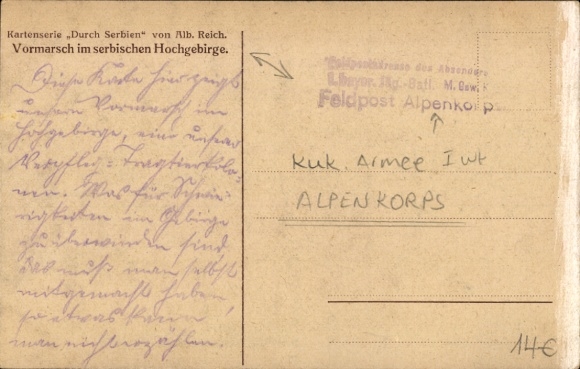 Kartenserie „Durch Serbien“ von Alb. Reich.
Vormarsch im serbischen Hochgebirge.
Diese Karte hier zeigt
unsern Vormarsch im
Hochgebirge, eine unserer
Verpfleg-Tragtierkolo-
nen. Was für Schwie-
rigkeiten im Gebirge
zu überwinden sind,
das muß man selbst
mitgemacht haben,
so etwas kann
man nicht erzählen.
Feldpostadresse des Absenders
1. bayer. Jäg.-Batl. M. Gew. K
Feldpost Alpenkorps
Kuk. Armee I wk
ALPENKORPS
14€